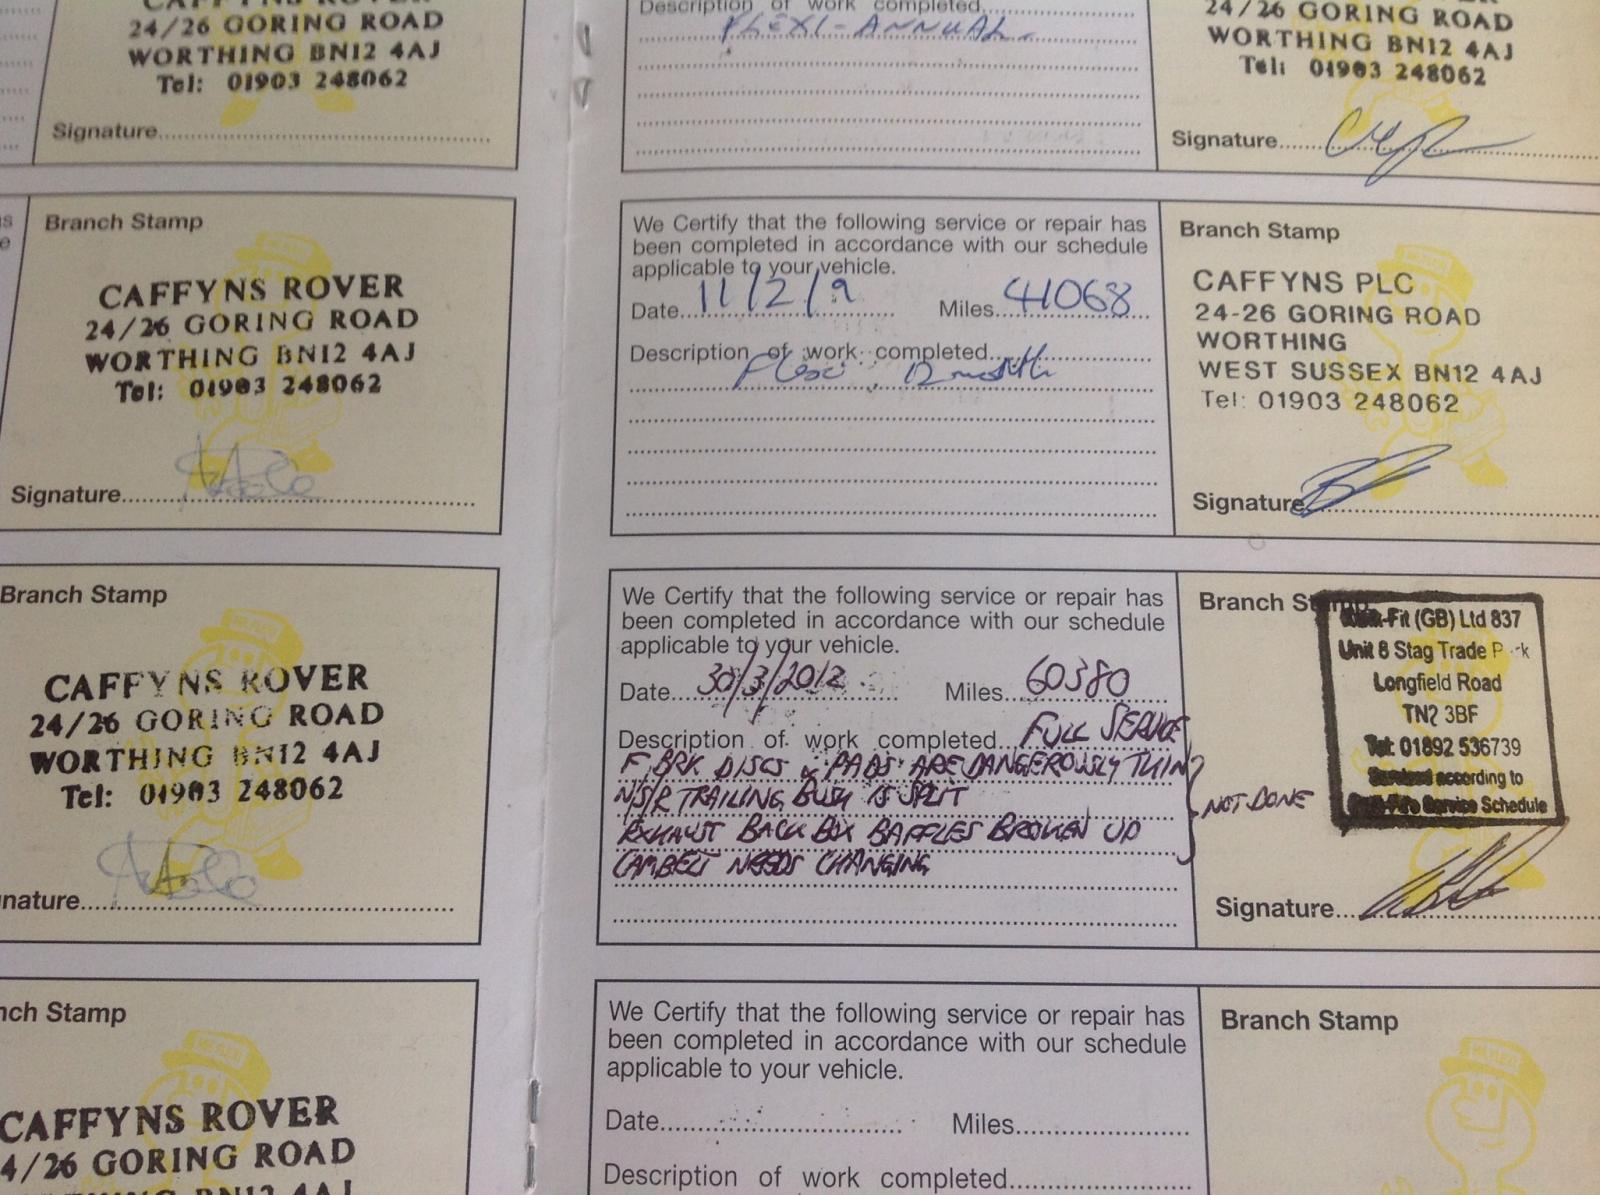 24/26 GORING ROAD
WORTHING BN12 4AJ
Tel: 01903 248062
Signature
Branch Stamp
CAFFYNS ROVER
24/26 GORING ROAD
WORTHING BN12 4AJ
Tel: 01903 248062
Signature
Branch Stamp
CAFFYNS ROVER
24/26 GORING ROAD
WORTHING BN12 4AJ
Tel: 01903 248062
nature
nch Stamp
CAFFYNS ROVER
4/26 GORING ROAD
Description of work completed
FLEXI-ANNUAL
24/26 GORING ROAD
WORTHING BN12 4AJ
Tel: 01903 248062
Signature
We Certify that the following service or repair has
been completed in accordance with our schedule
applicable to your vehicle.
Date 11/2/9 Miles 41068
Description of work completed
Flexi 12 month
Branch Stamp
CAFFYNS PLC
24-26 GORING ROAD
WORTHING
WEST SUSSEX BN12 4AJ
Tel: 01903 248062
Signature
We Certify that the following service or repair has
been completed in accordance with our schedule
applicable to your vehicle.
Date 30/3/2012 Miles 60380
Description of work completed FULL SERVICE
F BRK DISCS & PADS ARE DANGEROUSLY THIN
N/S/R TRAILING BUSH IS SPLIT
EXHAUST BACK BOX BAFFLES BROKEN UP
CAMBELT NEEDS CHANGING
NOT DONE
Branch Stamp
-Fit (GB) Ltd 837
Unit 8 Stag Trade P rk
Longfield Road
TN2 3BF
Tel: 01892 536739
Serviced according to
Service Schedule
Signature
We Certify that the following service or repair has
been completed in accordance with our schedule
applicable to your vehicle.
Date Miles
Description of work completed
Branch Stamp